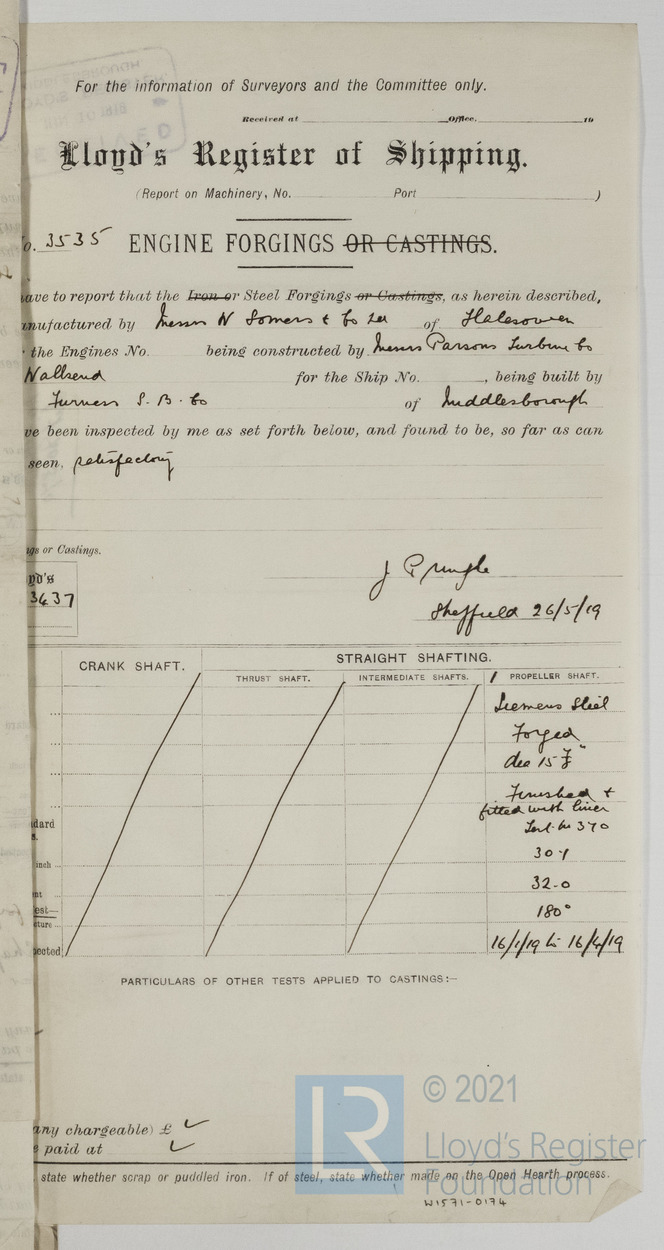 For the information of Surveyors and the Committee only.
Received at Office. 19
Lloyd's Register of Shipping.
(Report on Machinery, No. Port )
o. 3535 ENGINE FORGINGS OR CASTINGS.
ave to report that the Iron or Steel Forgings or Castings, as herein described,
anufactured by Messrs W Somers & Co Ltd of Halesowen
the Engines No. being constructed by Messrs Parsons Turbine Co
Wallsend for the Ship No. , being built by
Furness S. B. Co of Middlesborough
ve been inspected by me as set forth below, and found to be, so far as can
seen, satisfactory
ngs or Castings.
yd's
3637
J Pringle
Sheffield 26/5/19
CRANK SHAFT. STRAIGHT SHAFTING.
THRUST SHAFT. INTERMEDIATE SHAFTS. 1 PROPELLER SHAFT.
Siemens Steel
Forged
dia 15 7/8"
Finished &
fitted with liner
dard
Test No 370
inch 30.1
nt 32.0
est— 180°
cture
pected 16/1/19 to 16/4/19
PARTICULARS OF OTHER TESTS APPLIED TO CASTINGS:—
any chargeable) £ ✓
e paid at ✓
state whether scrap or puddled iron. If of steel, state whether made on the Open Hearth process.
LR
© 2021
Lloyd's Register
Foundation
W1571-0174